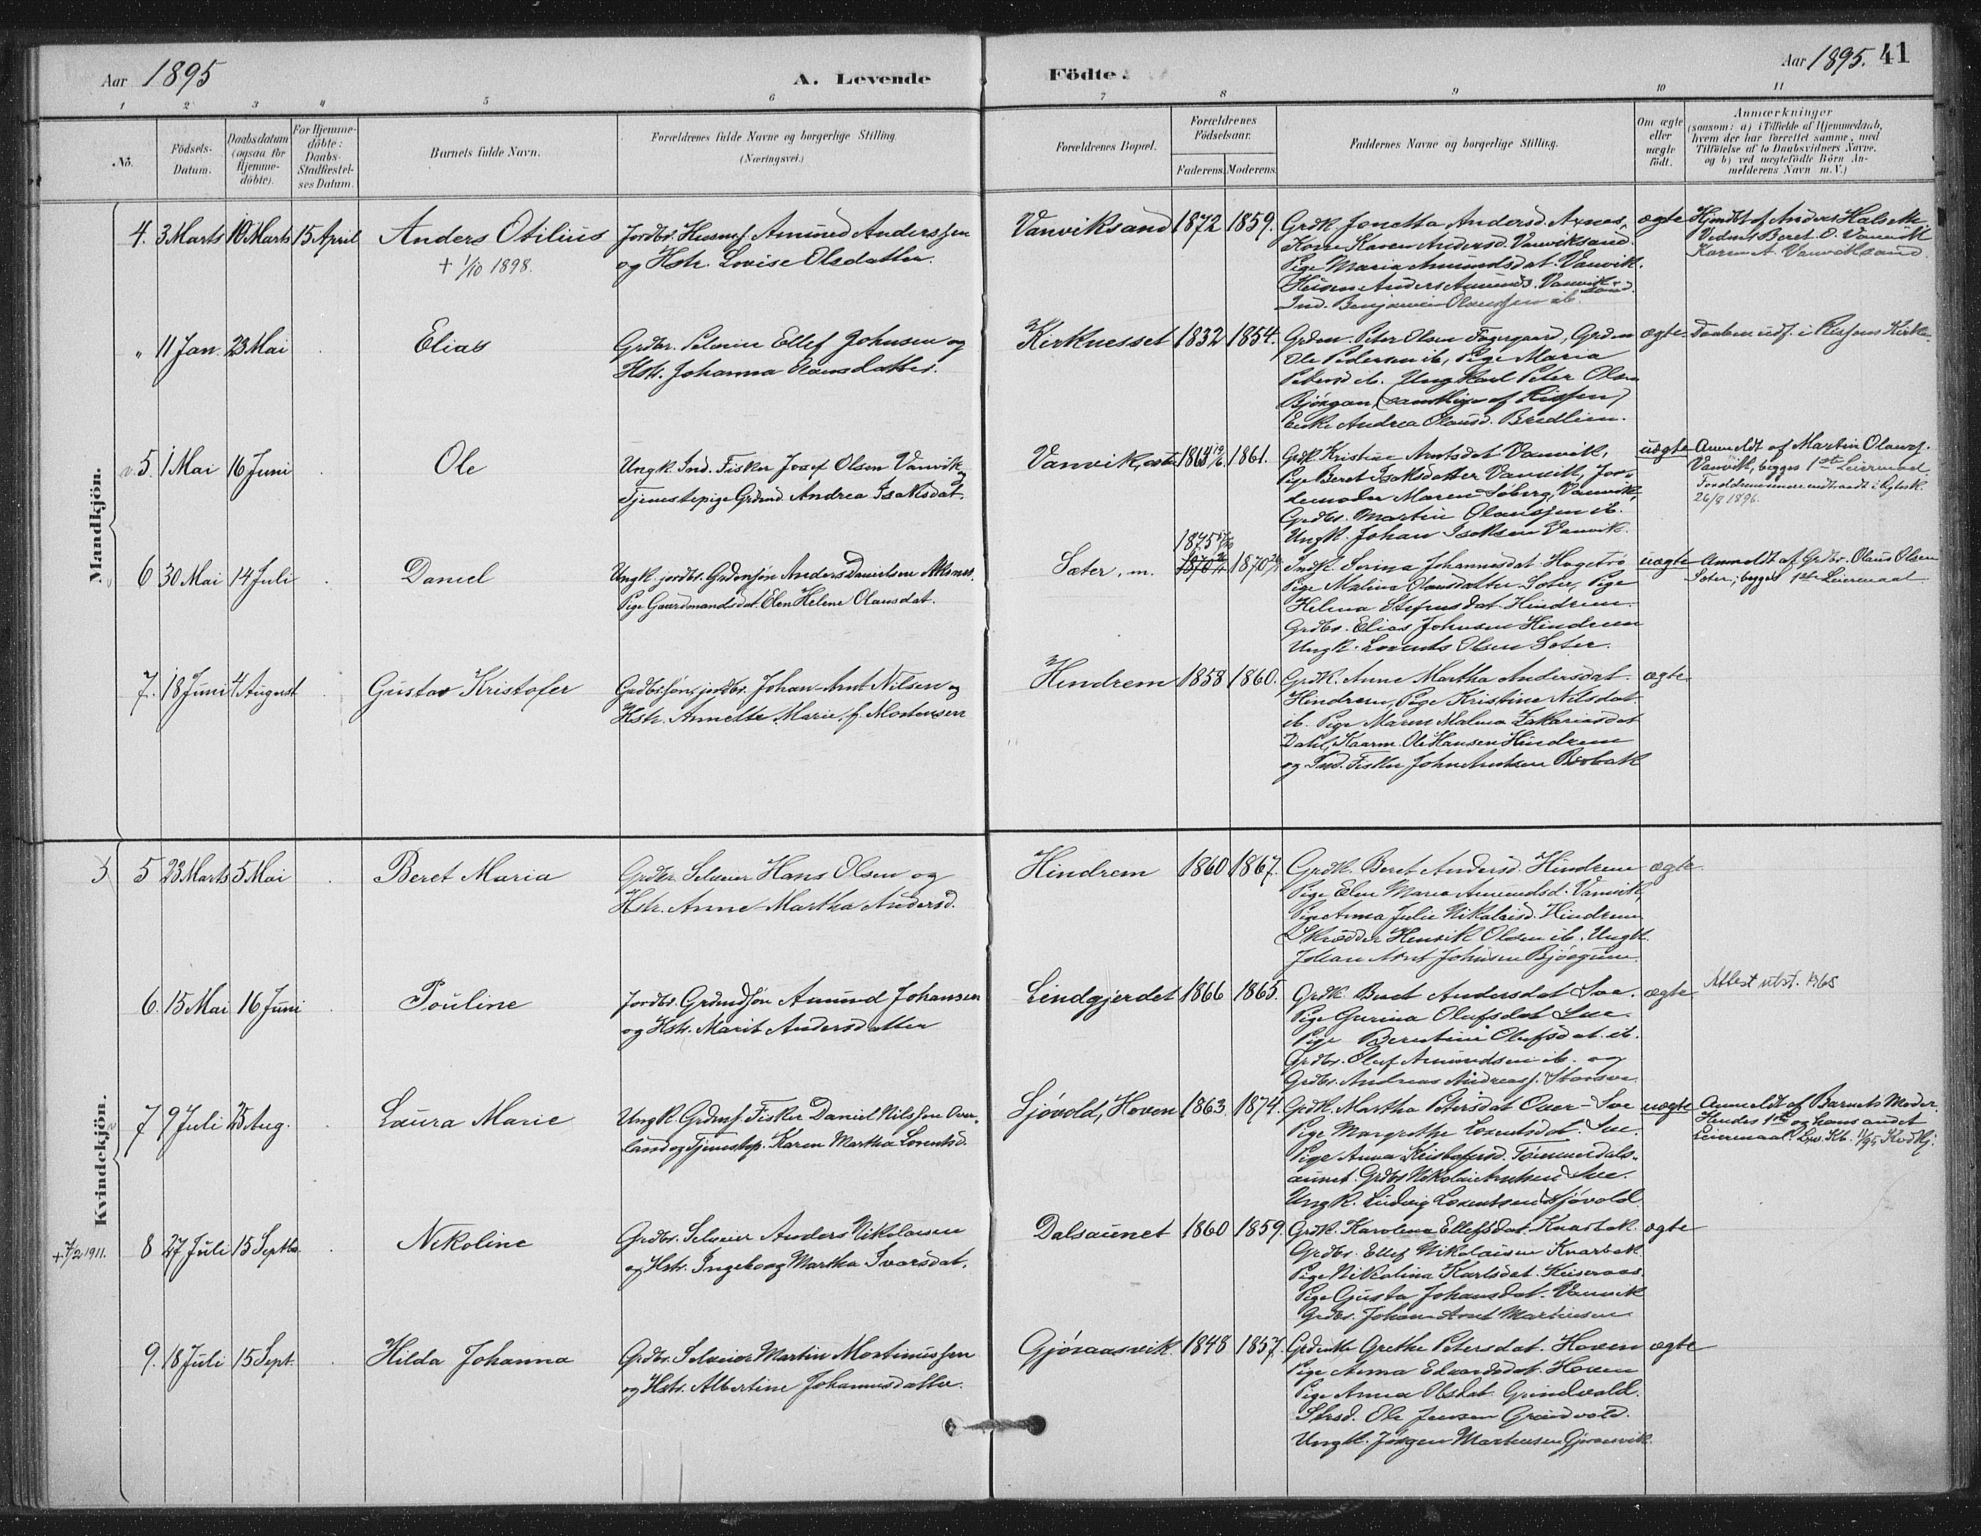 Aar 1895
A. Levende
Födte.
Aar 1895. 41
1 2 3 4 5 6 7 8 9 10 11
No.
Födsels-
Datum.
Daabsdatum
(ogsaa for
Hjemme-
döbte).
For Hjemme-
döbte:
Daabs-
Stadfæstel-
ses Datum.
Barnets fulde Navn.
Forældrenes fulde Navne og borgerlige Stilling
(Næringsvei.)
Forældrenes Bopæl.
Forældrenes
Födselsaar.
Faderens. Moderens.
Faddernes Navne og borgerlige Stilling.
Om ægte
eller
uægte
født.
Anmærkninger
(saasom: a) i Tilfælde af Hjemmedaab,
hvem der har forrettet samme, med
Tilföielse af to Daabsvidners Navne.
og b) ved uægtefödte Börn An-
melderens Navn m. V.)
Mandkjön.
4. 3 Marts 10 Marts 15 April Anders Otilius
+ 1/10 1898.
Jordbr. Husmf. Amund Anderssen
og Hstr. Lovise Olsdatter.
Vanviksand 1872 1859.
Grdk. Jonetta Andersd. Axnes,
Kone Karen Andersd. Vanviksand.
Pige Maria Amundsdat. Vanvik.
Anders Amunds. Vanvik-
sand.
Ind. Benjamin Olaussen ib.
ægte
Hjmdbt af Anders Halsetti
Vidner Beret O. Vanvik
Karen A. Vanviksand
" 11 Jan. 23 Mai Elias
Grdbr. Selveier Ellef Johnsen og
Hstr. Johanna Olausdatter.
Kirknesset 1832 1854.
Grdm. Peter Olsen Fagergaard, Grdm
Ole Pedersen ib, Pige Maria
Petersd. ib. Ungkarl Peter Olsen
Bjørgan, (samtlige af Rissen)
Enke Andrea Olausd. Bredlien.
ægte
Daaben udf. i Rissens Kirke.
5. 1 Mai 16 Juni Ole
Ungk. Ind. Fisker Josef Olsen Vanvik og
Tjenestepige Grdmd. Andrea Isaksdat.
Vanvik, østre 1861.
Grdk. Kristine Arntsdat Vanvik,
Pige Beret Isaksdatter Vanvik, Jor-
demoder Maren Soberg, Vanvik,
Grdbr. Martin Olaussen ib.
Ungk. Johan Isaksen Vanvik.
uægte
Anmeldt af Martin Olausf.
Vanvik, begges 1ste Leiermaal
26/8 1896.
6 30 Mai 14 Juli Daniel
Ungk. jordbr. Grdmsøn Anders Danielsen Aksnes.
Pige Gaardmandsdat. Elen Helene Olausdat.
Sæter, m. 1875 1870
Indk. Serina Johannesdat Hagetrø
Pige Malina Olausdatter Sæter, Pige
Helena Stefensdat Hindrem.
Grdbr. Elias Johnsen Hindrem
Ungk. Lorents Olsen Sæter.
uægte
Anmeldt af Grdbr. Olaus Olsen
Sæter, begges 1ste Leiermaal
7. 18 Juni 4 August Gustav Kristofer
Grdbrsøn, jordbr. Johan Arnt Nilsen og
Hstr. Annette Marie f. Mortensen
Hindrem 1858 1860.
Grdk. Anne Martha Andersdat.
Hindrem, Pige Kristine Nilsdat
ib. Pige Maren Malena Zakariasdat
Dahl, Kaarm. Ole Hansen Hindrem
og Ind. Fisker John Arntsen Rebak
ægte
Kvindekjön.
5 23 Marts 5 Mai Beret Maria
Grdbr. Selveier Hans Olsen og
Hstr. Anne Martha Andersd.
Hindrem 1860 1867.
Grdk. Beret Andersd. Hindrem
Pige Elen Maria Amundsd. Vanvik,
Pige Anna Julie Nikolaisd. Hindrem
Skrædder Henrik Olsen ib. Ungk.
Johan Arnt Johnsen Bjørgum.
ægte
6. 15 Mai 16 Juni Pouline
Jordbr. Grdmdsøn Amund Johansen
og Hstr. Marit Andersdatter
Lindgjerdet 1866 1865.
Grdk. Beret Andersdat Sæ.
Pige Gurina Olufsdat Sæ.
Pige Berntine Olufsdat. ib.
Grdbr. Oluf Amundsen ib. og
Grdbr. Andreas Andreasf. Storsve.
ægte
Attest utst. 1965
7 9 Juli 25 Aug. Laura Marie
Ungk. Grdmsf. Fisker Daniel Nilssen Over-
land og Tjenestep. Karen Martha Lorentsd.
Sjøvold, Hoven 1863. 1874.
Grdk. Martha Petersdat Over-Sæ
Pige Margrethe Lorentsdat. Sæ.
Pige Anna Kristofersd. Tømmerdals-
aunet. Grdbr. Nikolai Arntsen Sæ.
Ungk. Ludvig Lorentsen Sjøvold
uægte
Anmeldt af Barnets Moder
Hendes 1ste og hans andet
Leiermaal.
+ 7/2 1911. 8 27 Juli 15 Septbr. Nikoline
Grdbr. Selveier Anders Nikolaisen
og Hstr. Ingeborg Martha Ivarsdat.
Dalsaunet 1860 1859.
Grdk. Karolina Ellefsdat. Knarbak
Grdbr. Ellef Nikolaisen Knarbak
Pige Nikolina Karlsdat. Keiseraas
Pige Gusta Johansdat. Vanvik
Grdbr. Johan Arnt Martinsen
ægte
9. 18 Juli 15 Sept. Hilda Johanna
Grdbr. Selveier Martin Mortinussen
og Hstr. Albertine Johannesdatter.
Gjøraasvik 1848 1857.
Grdenke Grethe Petersdat. Hoven
Pige Anna Edvardsdat. Hoven
Pige Anna Olsdat. Grindvold.
Strsd. Ole Jensen Grindvold.
Ungk. Jørgen Martinsen Gjøraasvik.
ægte